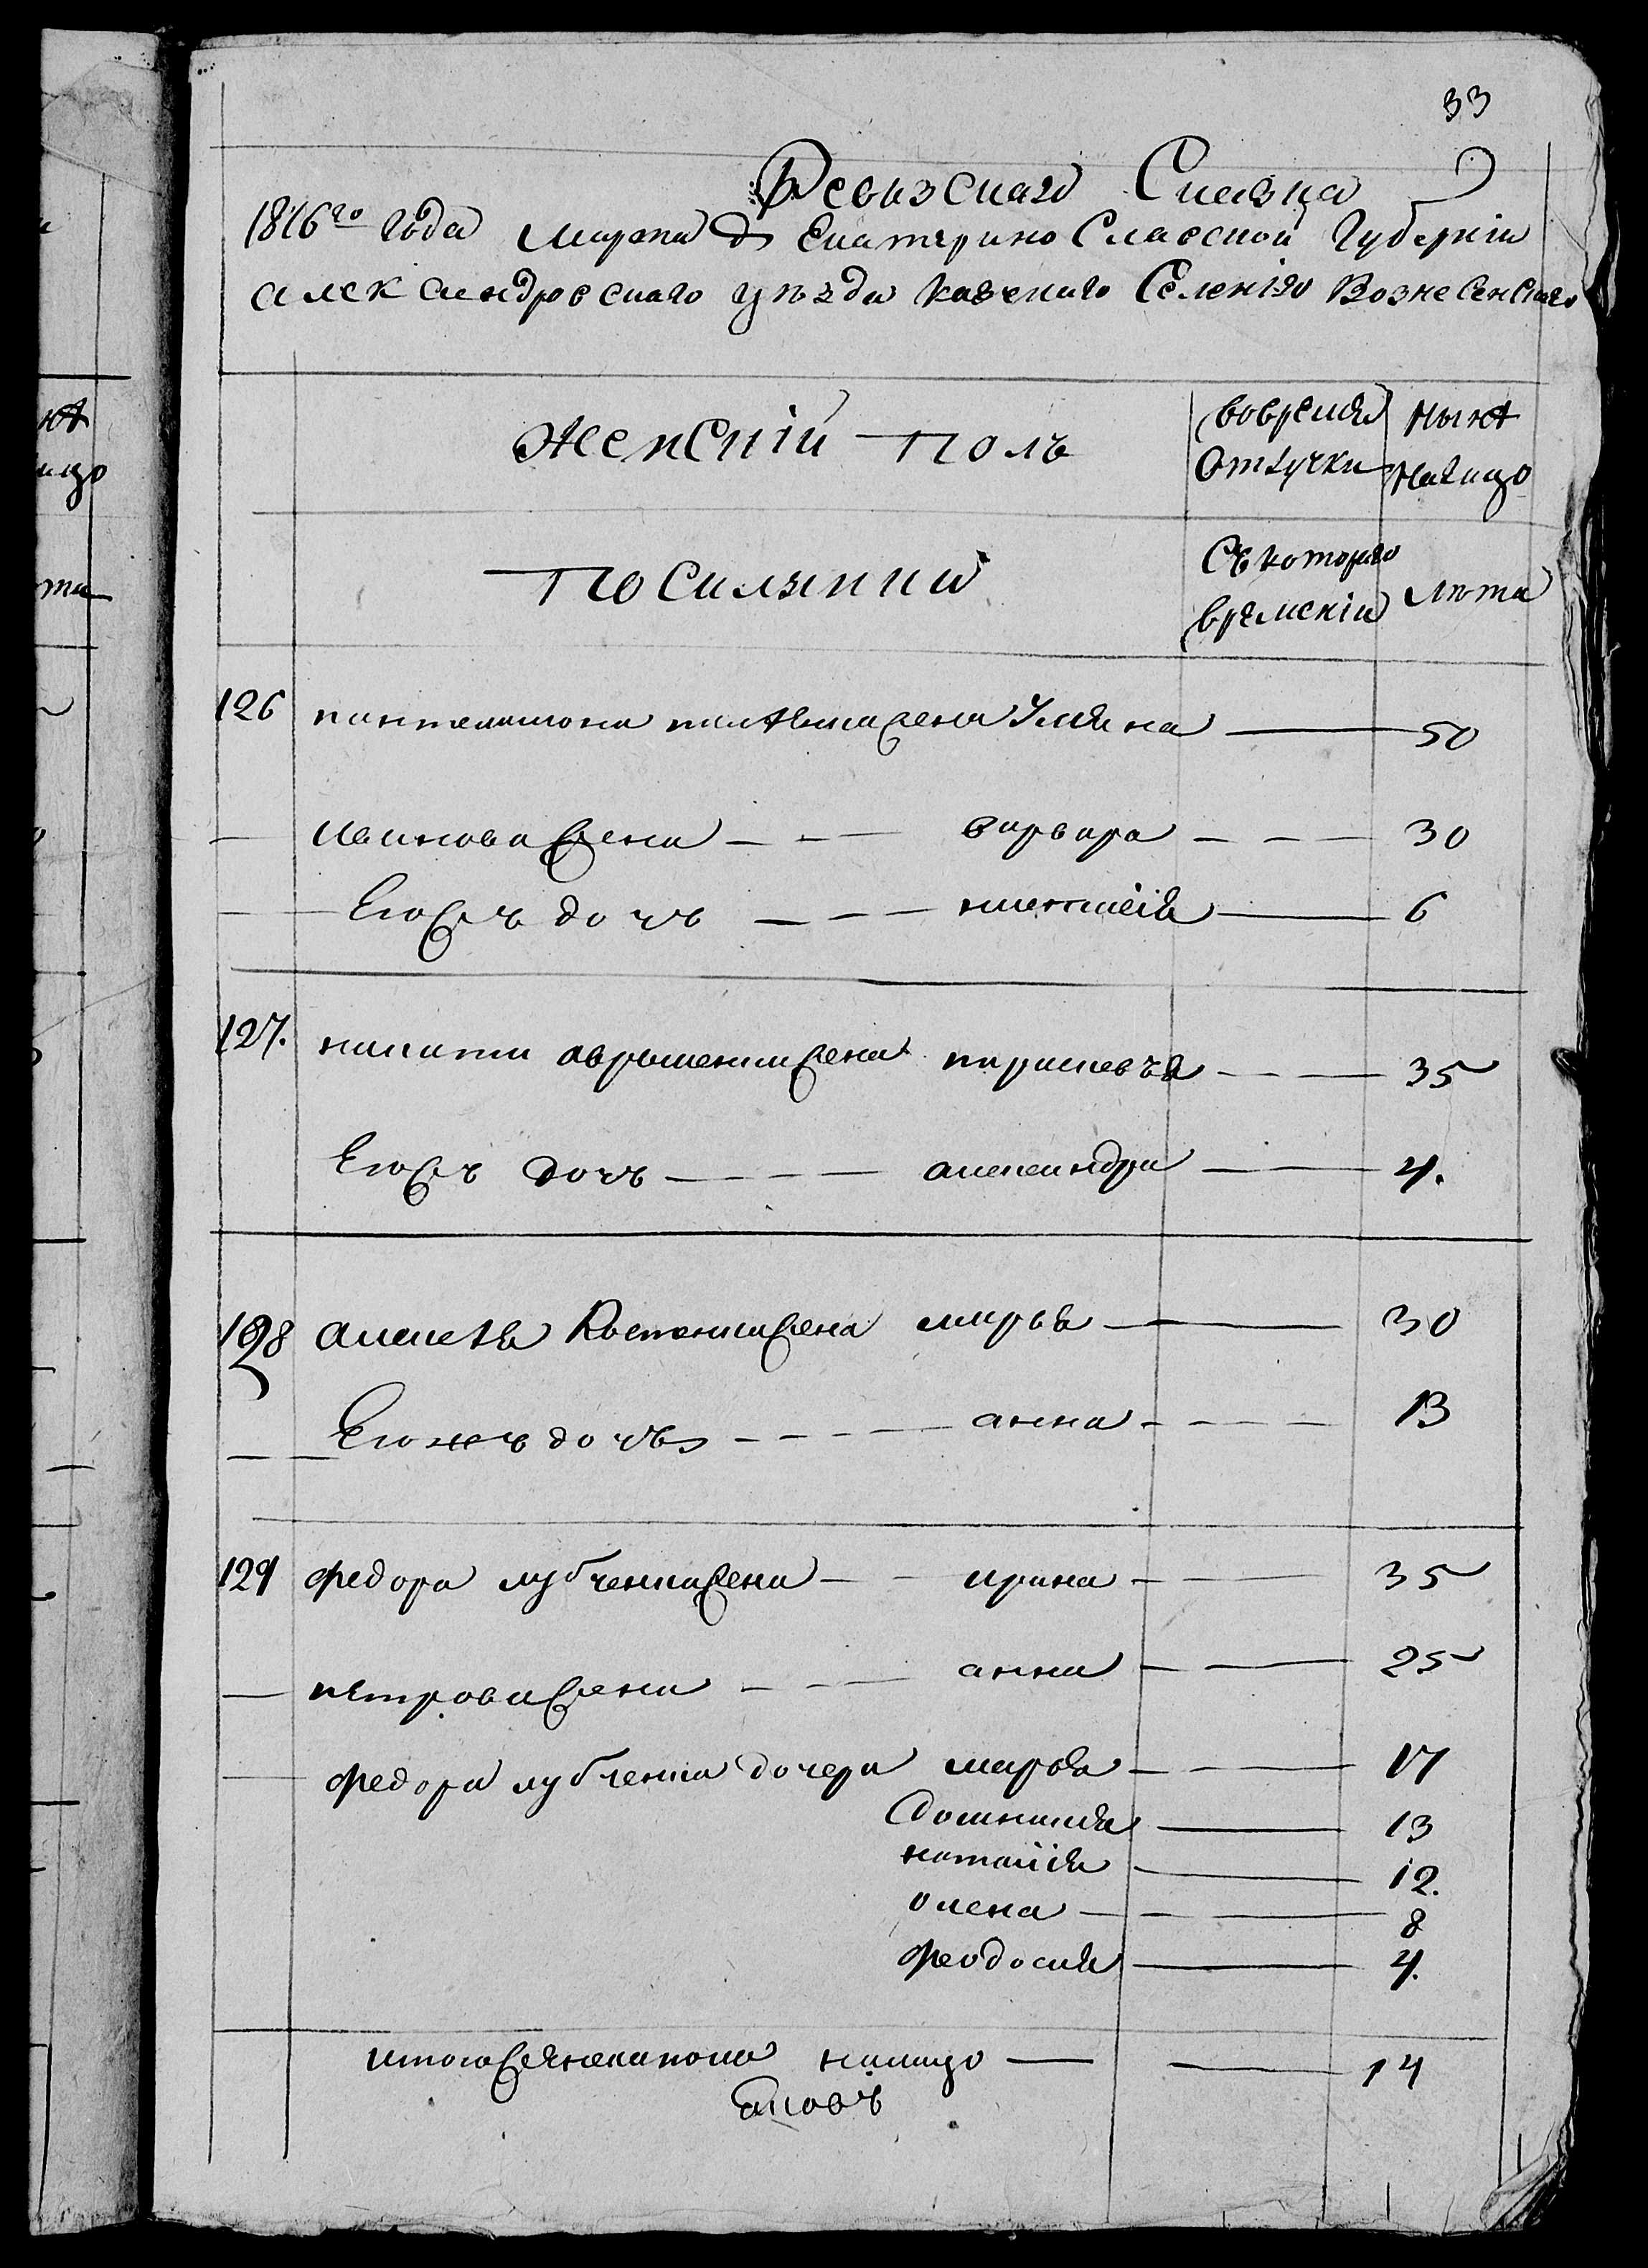 33
Ревизская Сказка
1816го года Марта д Екатерино Славской Губернiи
александровскаго уѣзда казенаго Селенiя Вознесенскаго
Женскiй Полъ
вовремя Отлучки
Нынѣ Налицо
Посиляннии
Съ котораго времениiи
лѣта
126 пантелимона жена Уляна 50
— Иванова жена — варвара — 30
— Егожъ дочъ — настасiя — 6
127. никиты авраменка жена парасковъя — 35
Егожъ дочъ — александра — 4.
128 алексѣя Костенка жена марья — 30
— Егожъ дочъ — анна — 13
129 федора лубченка жена — ирина — 35
— петрова жена — анна — 25
— федора лубченка дочери марья — 17
Домникия — 13
наталiя — 12.
олена — 8
феодосия — 4.
итого женска пола налицо — 14